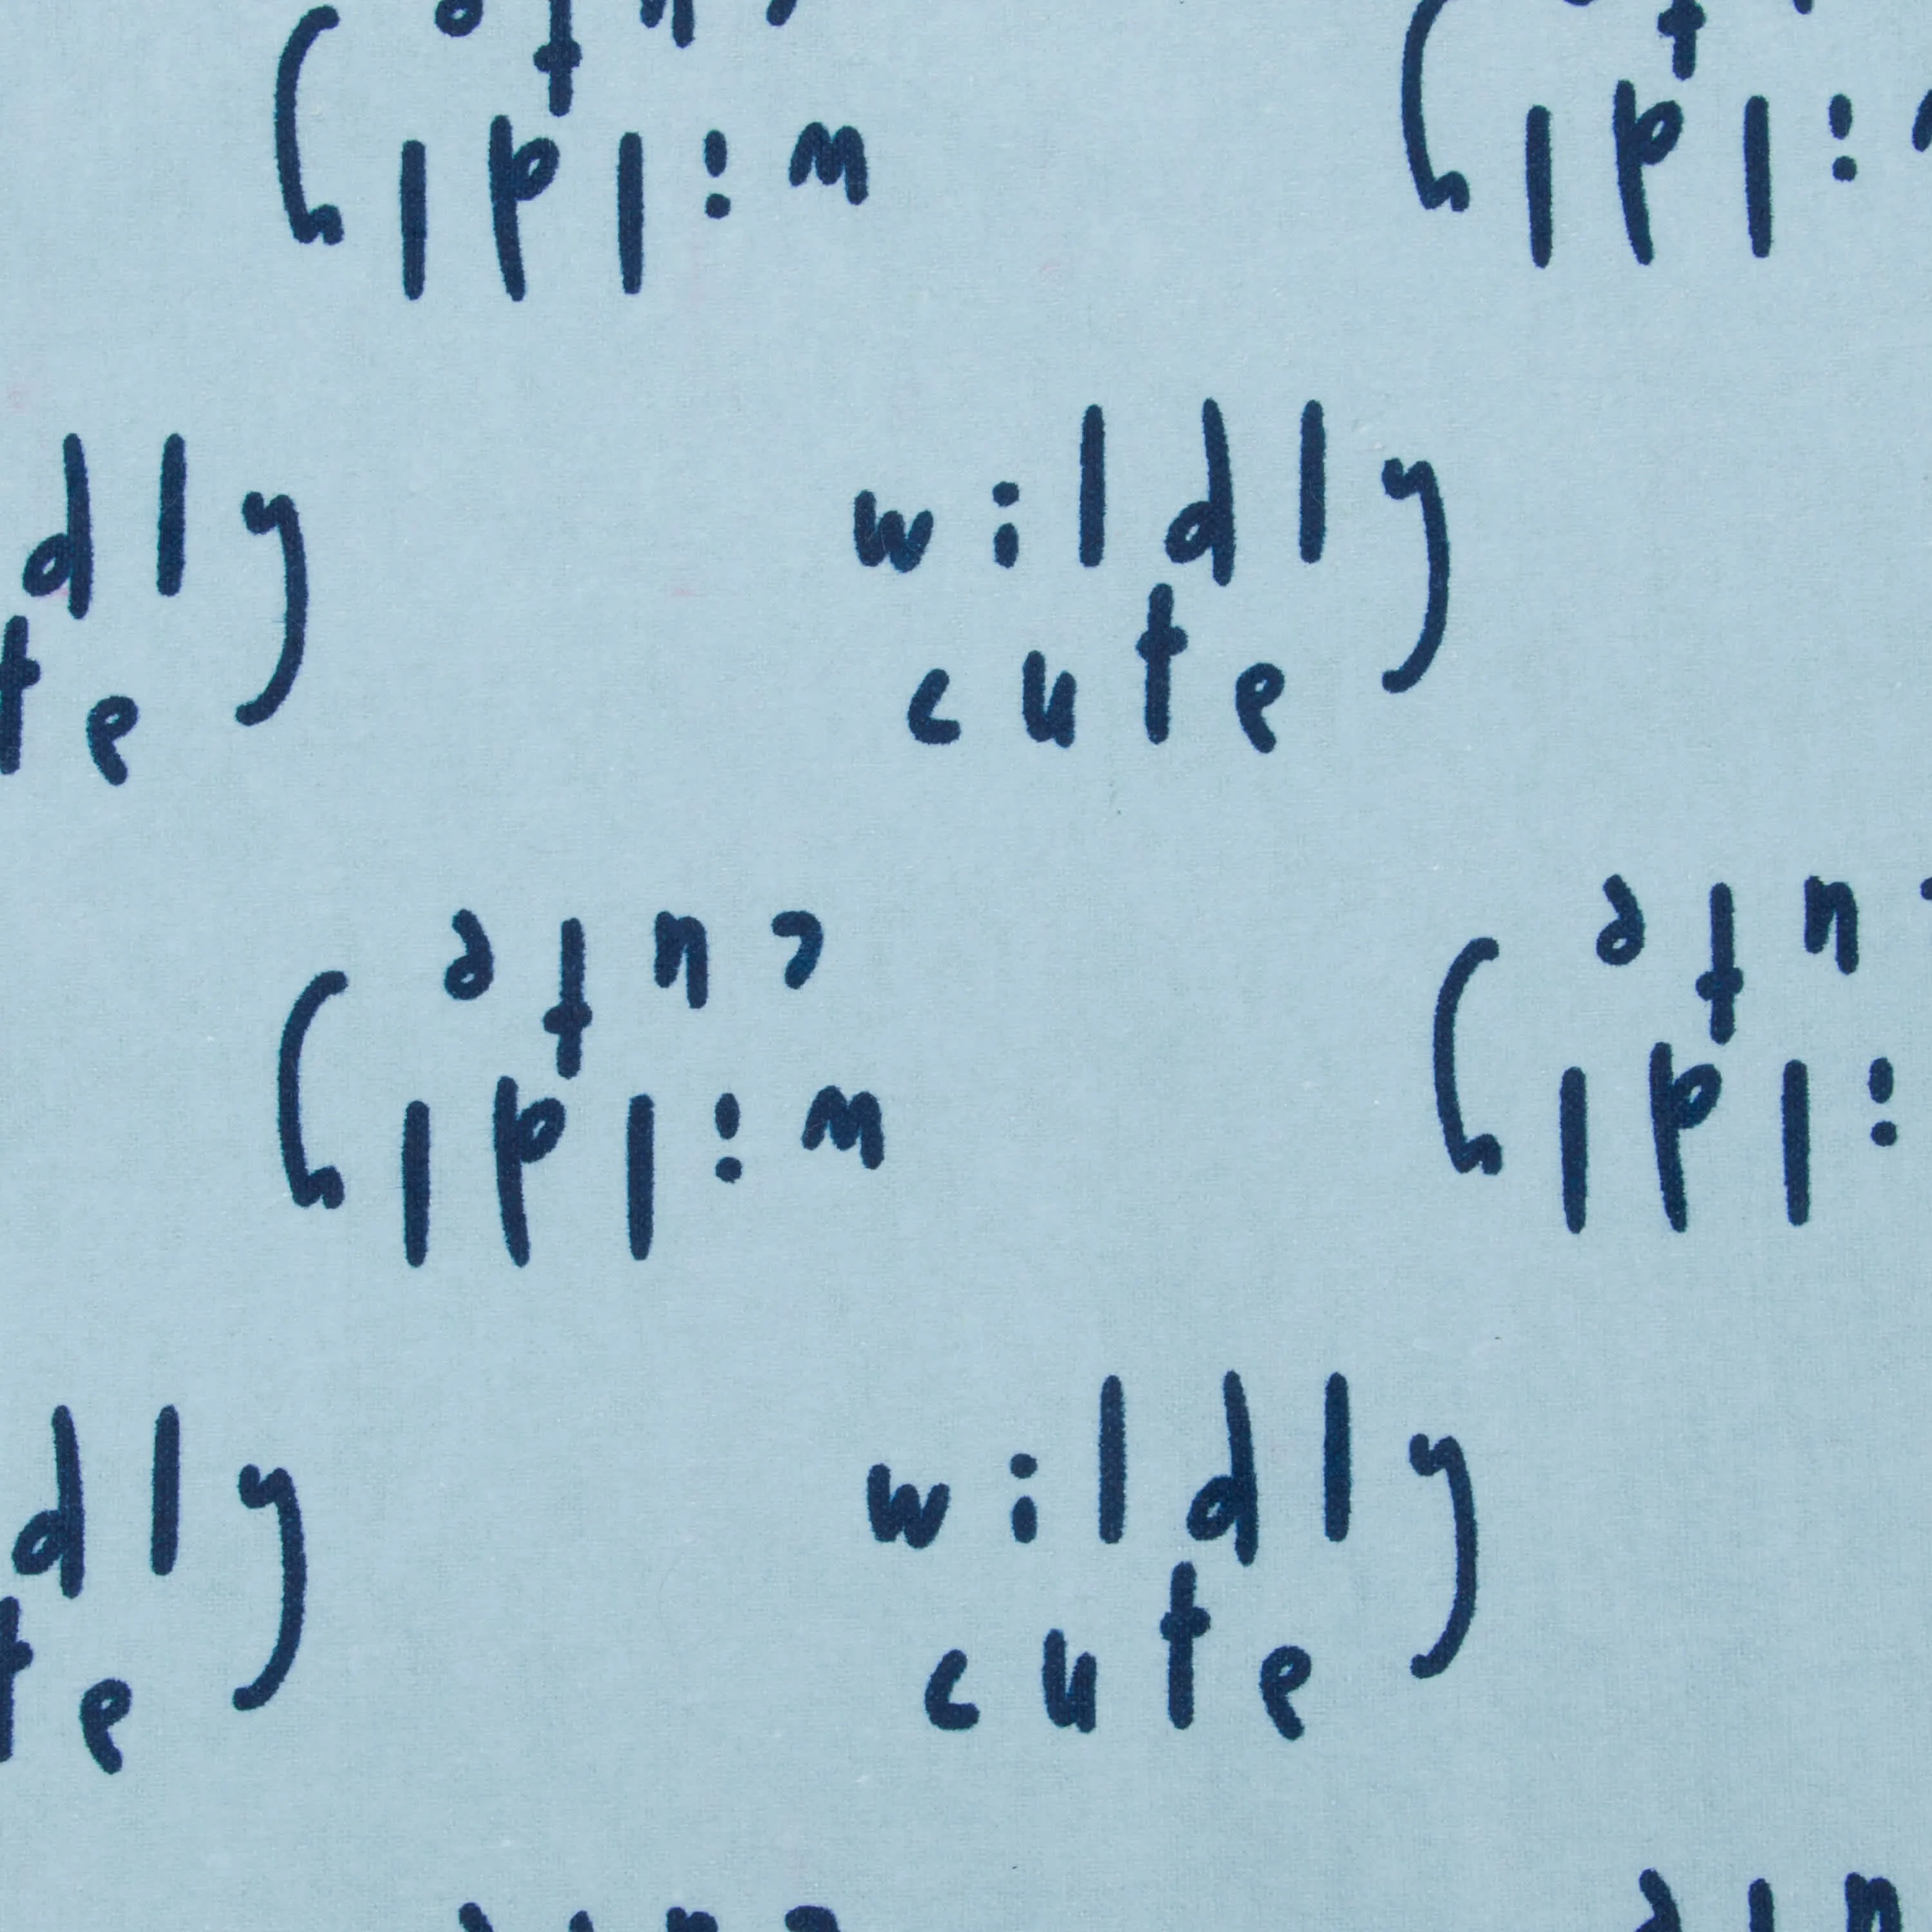 wildly
wildly
dly
wildly
te
cute
cute
cute
wildly
wildly
dly
wildly
te
cute